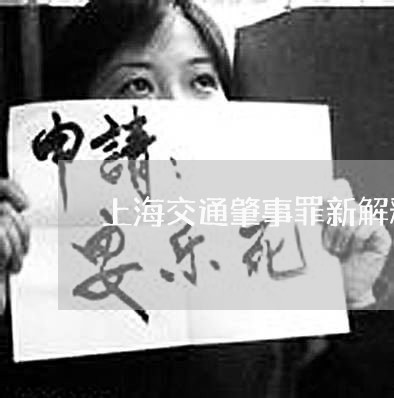 申請：
上海交通肇事罪新解
安乐死